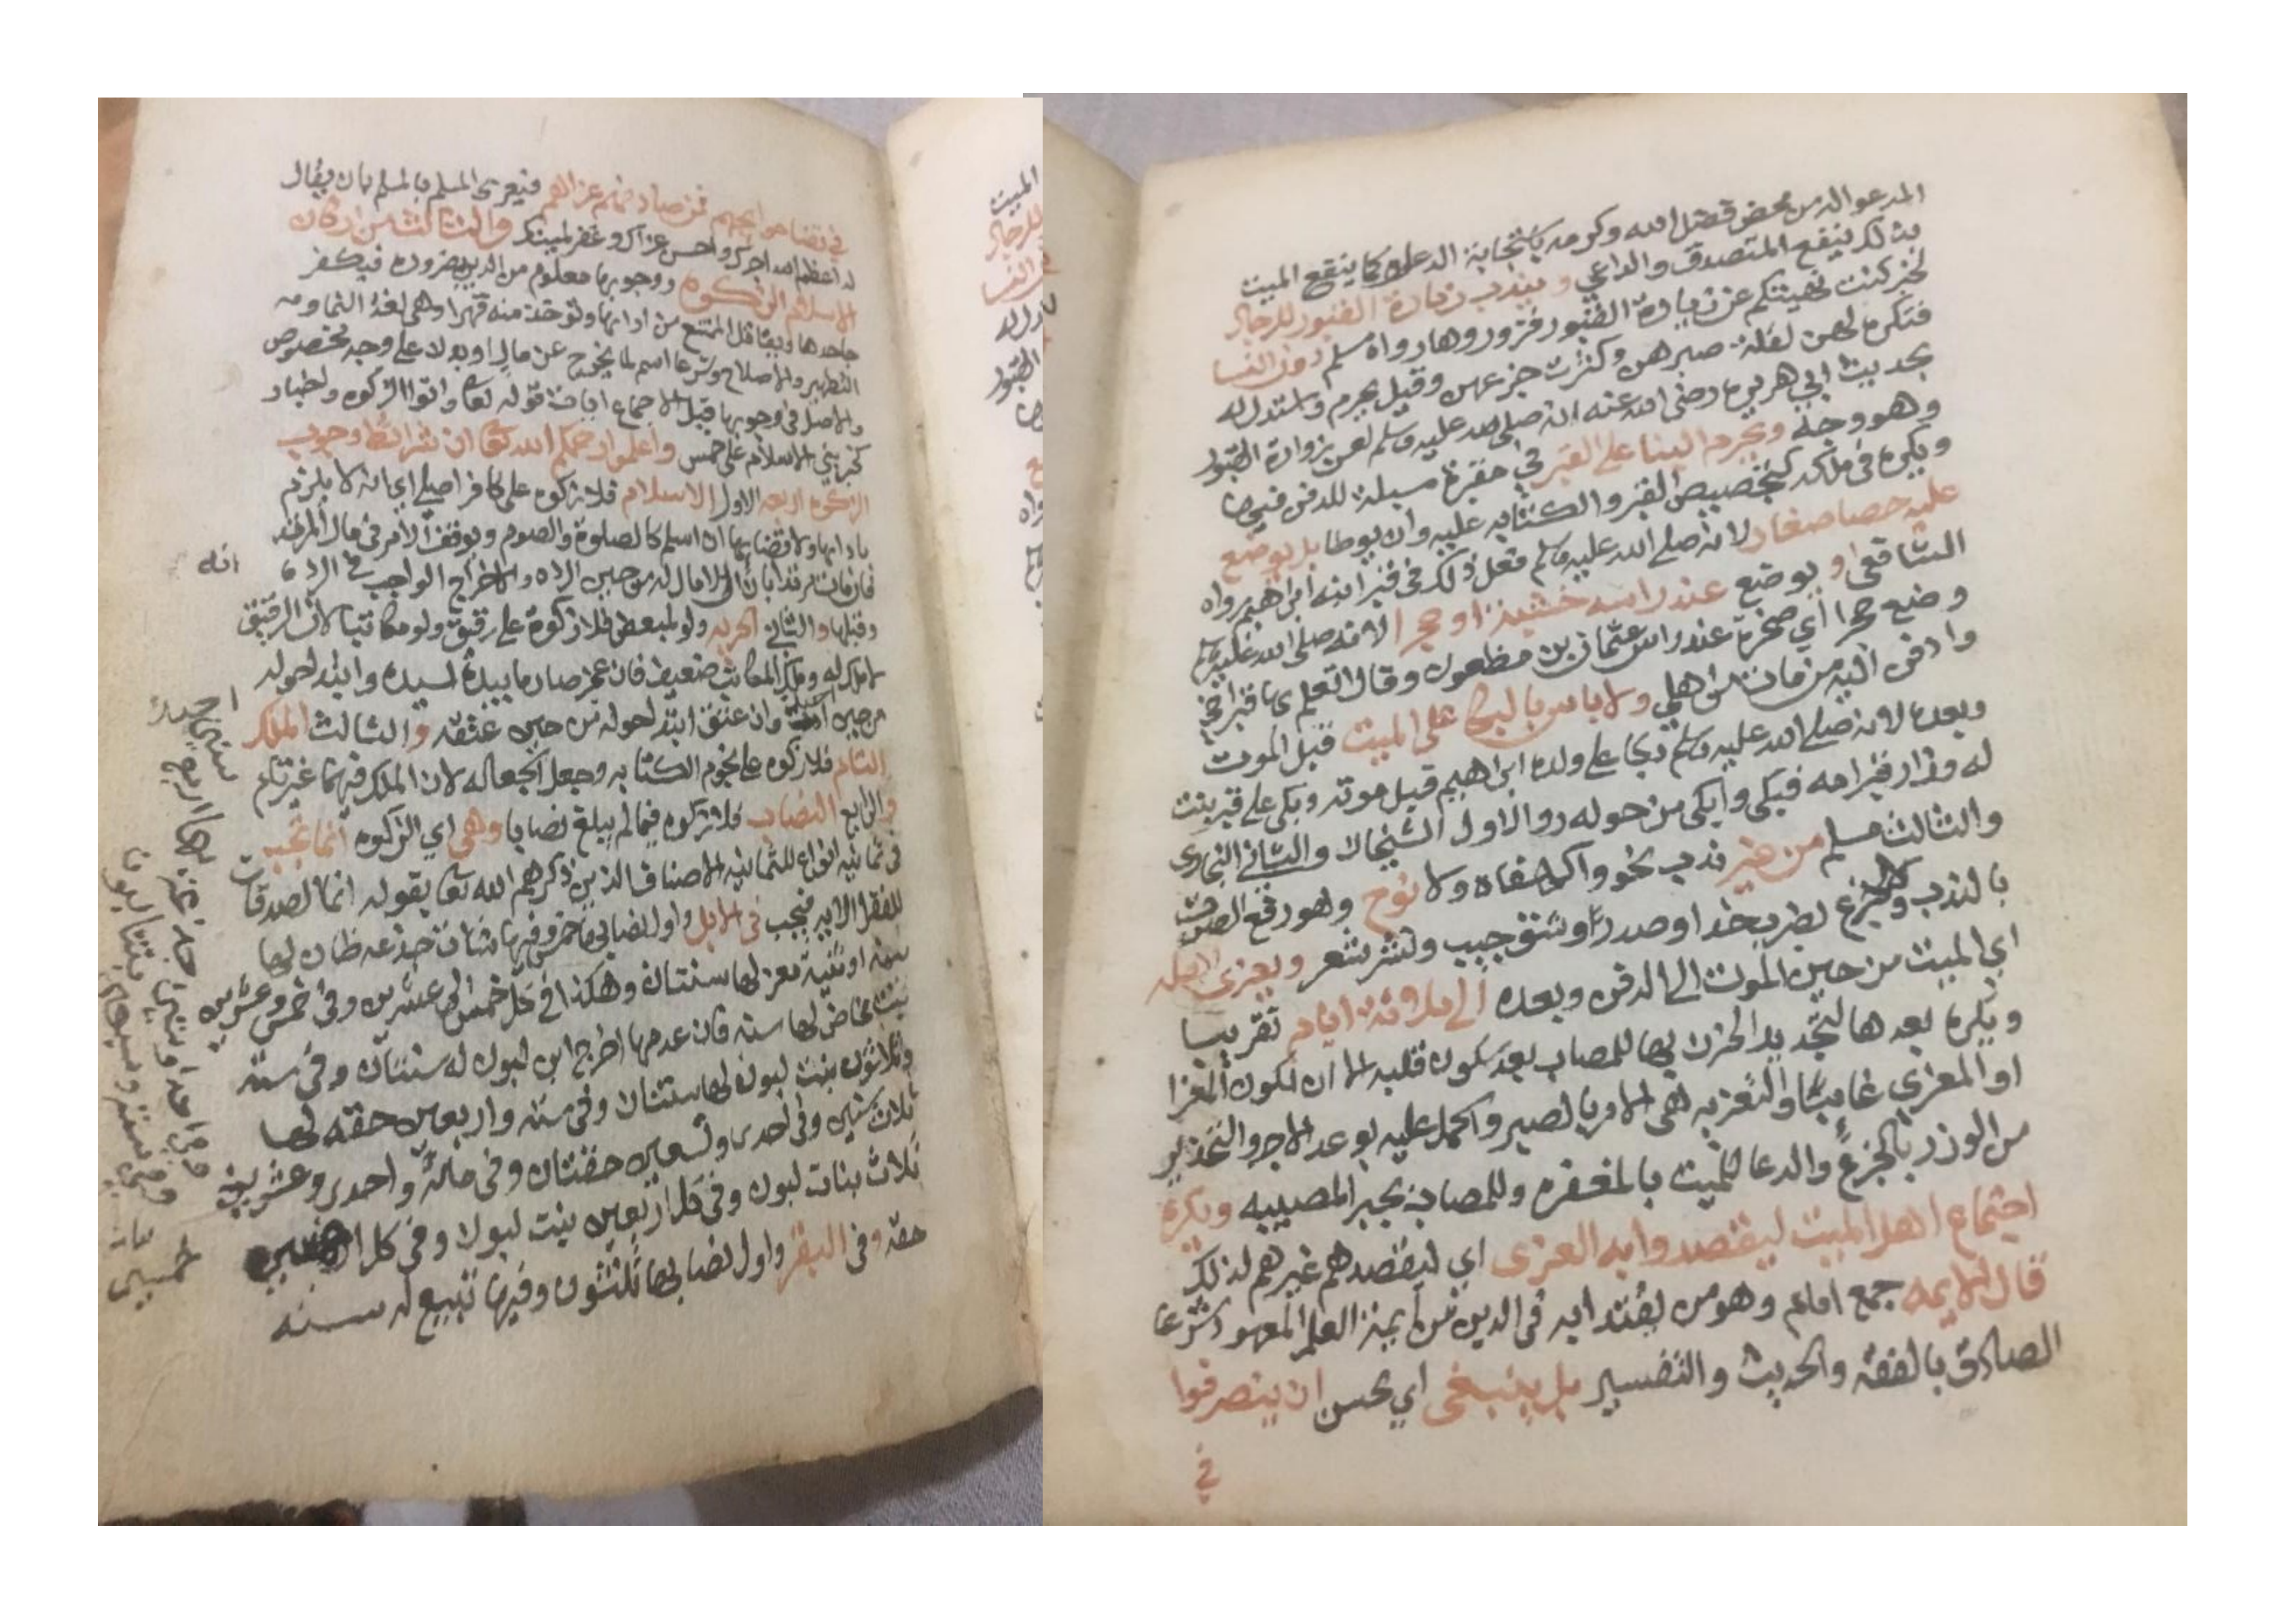 المدعو له من محض فضل الله وكرمه باستجابة الدعا وكما ينتفع الميت
بذلك ينتفع المتصدق والداعي ويندب زيارة القبور للرجال
لخبر كنت نهيتكم عن زيارة القبور فزوروها رواه مسلم دون النسا
فتكره لهن لقلة صبرهن وكثرت جزعهن وقيل يحرم واستدل له
بحديث ابي هريره رضي الله عنه انه صلى الله عليه وسلم لعن زوارة القبور
وهو وجه ويحرم البنا على القبر في مقبرة مسبلة للدفن فيها
ويكره في ملكه كتجصيص القبر والكتابه عليه وان يوطا بل يوضع
عليه حصا صغار لانه صلى الله عليه وسلم فعل ذلك في قبر ابنه ابراهيم رواه
الشافعي او يوضع عند راسه خشبة او حجر لانه صلى الله عليه وسلم
وضع حجرا اي صخرة عند راس عثمان بن مظعون وقال اتعلم بها قبر اخي
وادفن اليه من مات من اهلي ولا باس بالبكا على الميت قبل الموت
وبعده لانه صلى الله عليه وسلم بكا على ولده ابراهيم قبل موته وبكى على قبر بنت
له وزار قبر امه فبكى وابكى من حوله روا الاول الشيخان والثاني البخاري
والثالث مسلم من غير ندب نحو واكهفاه ولا نوح وهو رفع الصوت
بالندب ولا جزع بضرب خد او صدر وشق جيب ونشر شعر ويعزى اهله
اي الميت من حين الموت الى الدفن وبعده الى ثلاثة ايام تقريبا
ويكره بعدها لتجديد الحزن بها للمصاب بعد سكون قلبه الا ان يكون المعزا
او المعزي غايبا والتعزيه هي الامر بالصبر والحمل عليه بوعد الاجر والتحذير
من الوزر بالجزع والدعا للميت بالمغفره وللمصاب بجبر المصيبه ويكره
اجتماع اهل الميت ليقصدوا به العزى اي ليقصدهم غيرهم لذلك
قال الايمه جمع امام وهو من يقتدا به في الدين من ايمة العلم المعهود شرعا
الصادق بالفقه والحديث والتفسير بل ينبغي اي يحسن ان ينصرفوا
في
في قضا حوايجهم فمن صادفهم عزاهم فيعزى المسلم بالمسلم بان يقال
له اعظم الله اجرك واحسن عزاك وغفر لميتك والثالث من اركان
الاسلام الزكوه ووجوبها معلوم من الدين بضروره فيكفر
جاحدها ويقاتل الممتنع من ادايها وتوخذ منه قهرا وهي لغة النما ومه
التطهير والاصلاح وشرعا اسم لما يخرج عن مال او بدن على وجه مخصوص
والاصل في وجوبها قبل الاجماع ايات قوله تعا واتوا الزكوه واخبار
كخبر بني الاسلام على خمس واعلموا رحمكم الله تعا ان شرائط وجوب
الزكوه اربعه الاول الاسلام فلا زكوه على كافر اصلي اي انه لا يلزم
بادايها ولا قضايها ان اسلم كالصلوة والصوم ويوقف الامر في مال المرتد
فان مات مرتدا بان ان لا مال له من حين الرده والاخراج الواجب في الردة
انه
وقبلها والثاني الحريه ولو لمبعض فلا زكوة على رقيق ولو مكاتبا لان الرقيق
لا ملك له وملك المكاتب ضعيف فان عجز صار ما بيده لسيده وابتدا حوله
من حين وان عتق ابتدا حوله من حين عتقه والثالث الملك
التام فلا زكوه على نجوم الكتابه وجعل الجعاله لان الملك فيهما غير تام
والرابع النصاب فلا زكوه فيما لم يبلغ نصابا وهي اي الزكوه انما تجب
في ثمانيه انواع للثمانيه الاصناف الذين ذكرهم الله تعا بقوله انما الصدقات
للفقرا الايه فتجب في الابل واول نصابها خمس وفيها شاة جذعه ضان لها
سنه او ثنية معز لها سنتان وهكذا في كل خمس الى عشرين وفي خمس وعشرين
بنت مخاض لها سنه فان عدمها اخرج ابن لبون له سنتان وفي سته
وثلاثون بنت لبون لها سنتان وفي سته واربعين حقه لها
ثلاث سنين وفي احدى وتسعين حقتان وفي مائة واحدى وعشرين
ثلاث بنات لبون وفي كل اربعين بنت لبون وفي كل
حقه وفي البقر واول نصابها ثلثون وفيها تبيع له سنه
وفي احدا وستين جذعه لها اربع
وفي ستة وسبعين بنتا لبون
خمسين